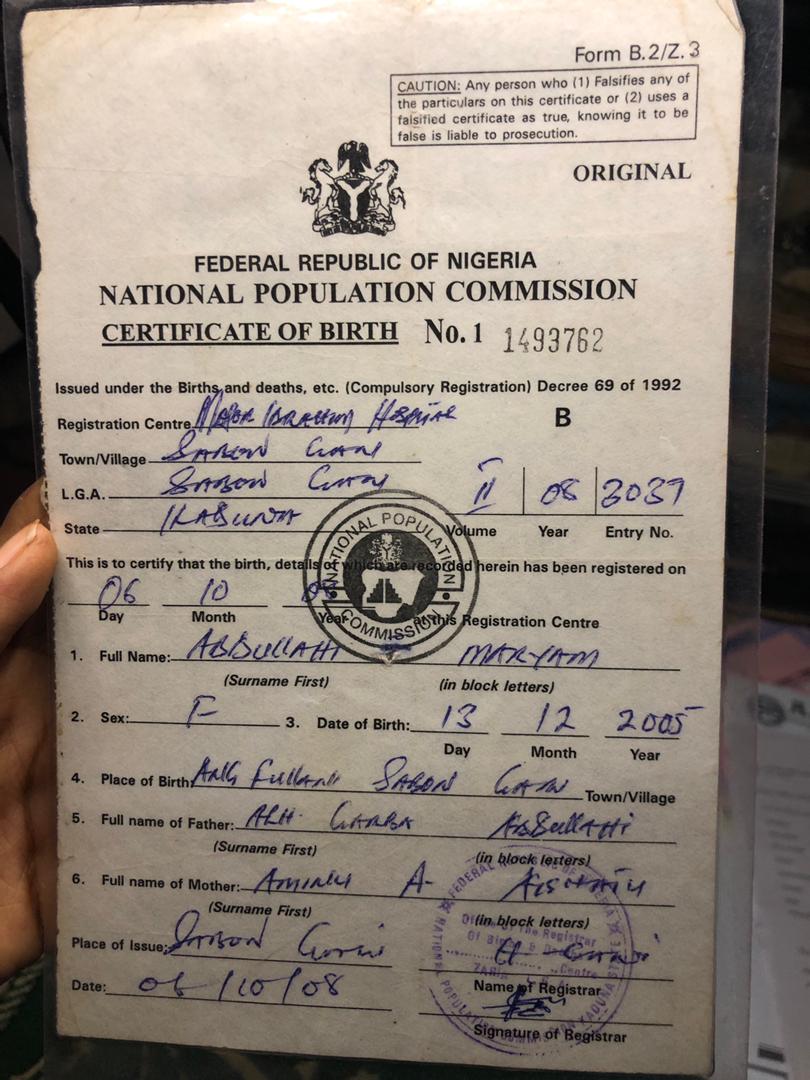 Form B.2/Z.3
CAUTION: Any person who (1) Falsifies any of
the particulars on this certificate or (2) uses a
falsified certificate as true, knowing it to be
false is liable to prosecution.
ORIGINAL
FEDERAL REPUBLIC OF NIGERIA
NATIONAL POPULATION COMMISSION
CERTIFICATE OF BIRTH No. 1 1493762
Issued under the Births and deaths, etc. (Compulsory Registration) Decree 69 of 1992
Registration Centre Major Ibrahim Hospital B
Town/Village SABON GARI
L.G.A. SABON GARI II 08 3037
State KADUNA Volume Year Entry No.
NATIONAL POPULATION COMMISSION
This is to certify that the birth, details of which are recorded herein has been registered on
06 10 08
Day Month Year at this Registration Centre
1. Full Name: ABDULLAHI MARYAM
(Surname First) (in block letters)
2. Sex: F 3. Date of Birth: 13 12 2005
Day Month Year
4. Place of Birth: SABON GARI Town/Village
5. Full name of Father: ALH. GARBA ABDULLAHI
(Surname First) (in block letters)
6. Full name of Mother: A.
(Surname First) (in block letters)
Place of Issue: SABON GARI
Name of Registrar
Date: 06/10/08
Signature of Registrar